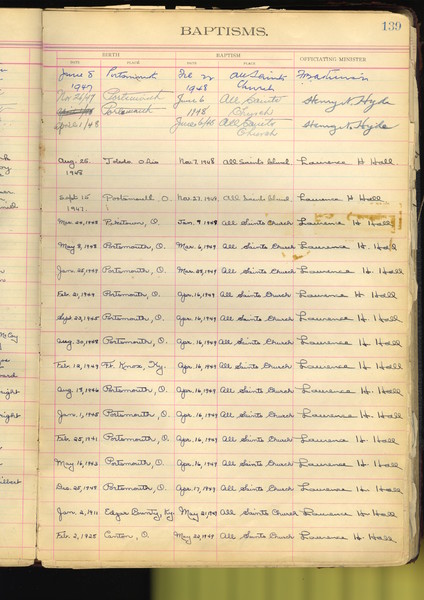 BAPTISMS.
139
BIRTH BAPTISM
DATE PLACE DATE PLACE OFFICIATING MINISTER
June 8 Portsmouth Feb 22 All Saints
1947 1948 Church
Nov 26/47 Portsmouth June 6 All Saints Henry N. Hyde
Portsmouth 1948 Church
April 1/48 June 6/48 All Saints Henry N. Hyde
Church
Aug. 25 Toledo Ohio Nov. 7, 1948 All Saints Church Laurence H. Hall
1948
Sept. 15 Portsmouth, O. Nov. 27, 1948 All Saints Church Laurence H Hall
1947.
Piketown, O. Jan. 9 1949 All Saints Church Laurence H. Hall
May 8, 1948 Portsmouth, O. Mar. 6, 1949 All Saints Church Laurence H. Hall
Portsmouth, O. All Saints Church Laurence H. Hall
Feb. 21, 1949 Portsmouth, O. Apr. 16, 1949 All Saints Church Laurence H. Hall
Portsmouth, O. Apr. 16, 1949 All Saints Church Laurence H. Hall
Aug. 30, 1948 Portsmouth, O. Apr. 16, 1949 All Saints Church Laurence H. Hall
Ft. Knox, Ky. Apr. 16, 1949 All Saints Church Laurence H. Hall
Portsmouth, O. Apr. 16, 1949 All Saints Church Laurence H. Hall
Portsmouth, O. Apr. 16, 1949 All Saints Church Laurence H. Hall
Feb. 25, 1941 Portsmouth, O. Apr. 16, 1949 All Saints Church Laurence H. Hall
Portsmouth, O. Apr. 16, 1949 All Saints Church Laurence H. Hall
Dec. 25, 1948 Portsmouth, O. Apr. 17, 1949 All Saints Church Laurence H. Hall
Jan. 2, 1911 Ky. May 21, 1949 All Saints Church Laurence H. Hall
Feb. 2, 1925 Canton, O. May 22, 1949 All Saints Church Laurence H. Hall